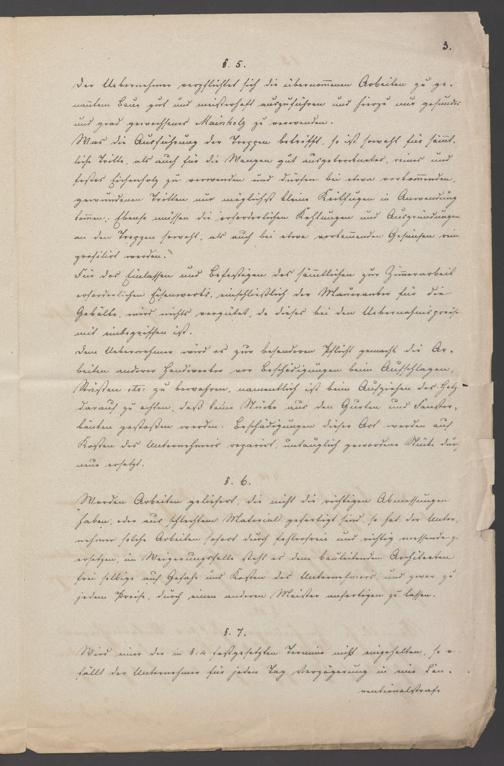 3.
§. 5.
Der Unternehmer verpflichtet sich die übernommenen Arbeiten zu ge-
nanntem Baue gut und meisterhaft auszuführen und hierzu nur gesundes
und grad gewachsenes Mainholz zu verwenden.
Was die Ausführung der Treppen betrifft, so ist sowohl für sämt-
liche Tritte, als auch für die Wangen gut ausgetrocknetes, reines und
festes Eichenholz zu verwenden und dürfen bei etwa vorkommenden
gewundenen Tritten nur möglichst kleine Keilfugen in Anwendung
kommen. Ebenso müssen die erforderlichen Kehlungen und Ausgründungen
an den Treppen sowohl, als auch bei etwa vorkommenden Gesimsen rein
profilirt werden.
Für das Einlassen und Befestigen des sämmtlichen zur Zimmerarbeit
erforderlichen Eisenwerks, einschließlich der Maueranker für die
Gebälke, wird nichts vergütet, da dieses bei den Uebernahmspreisen
mit einbegriffen ist.
Dem Unternehmer wird es zur besonderen Pflicht gemacht die Ar-
beiten anderer Handwerker vor Beschädigungen beim Aufschlagen,
etc. zu bewahren, namentlich ist beim Aufziehen des Holz-
darauf zu achten, daß keine Stücke aus den Gurten und Fenster-
bänken gestoßen werden. Beschädigungen dieser Art werden auf
Kosten des Unternehmers reparirt, untauglich gewordene Stücke durch
neue ersetzt.
§. 6.
Werden Arbeiten geliefert, die nicht die richtigen Abmessungen
haben, oder aus schlechtem Material gefertigt sind, so hat der Unter-
nehmer solche Arbeiten sofort durch fehlerfreie und richtig messende zu
ersetzen, im Weigerungsfalle steht es dem bauleitenden Architekten
frei selbige auf Gefahr und Kosten des Unternehmers, und zwar zu
jedem Preise, durch einen anderen Meister anfertigen zu lassen.
§. 7.
Wird einer der in §. 4 festgesetzten Termine nicht eingehalten, so ver
fällt der Unternehmer für jeden Tag Verzögerung in eine Con-
ventionalstrafe